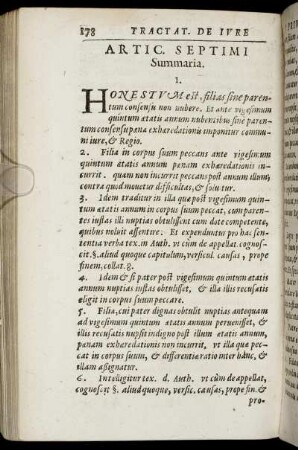 178 TRACTAT. DE IVRE
ARTIC. SEPTIMI
Summaria.
1.
HONESTVM est, filias sine paren-
tum consensu non nubere. Et ante vigesimum
quintum ætatis annum nubentibus sine paren-
tum consensu pœna exhæredationis imponitur commu-
ni iure, & Regio.
2. Filia in corpus suum peccans ante vigesimum
quintum ætatis annum pœnam exhæredationis in-
currit. quam non incurrit peccans post annum illum,
contra quod mouetur difficultas, & soluitur.
3. Idem traditur in illa quæ post vigesimum quin-
tum ætatis annum in corpus suum peccat, comparan-
tes fuis illi nuptias obtulissent cum date competente,
quibus noluit assentire. Et expenditur pro hac sen-
tentia verba tex. in Auth. vt cùm de appellat. cognos-
cit. §. aliud quoque capitulum, versicul. causas, prope
finem, collat. 8.
4. Idem & si pater post vigesimum quintum ætatis
annum nuptias iustas obtulisset, & illa eis reiectis
eligit in corpus suum peccare.
5. Filia, cui pater dignas obtulit nuptias antequam
ad vigesimum quintum ætatis annum perueniisset, &
eis reiectis nupsit indigno post illum ætatis annum,
pœnam exhæredationis non incurrit, vt illa quæ pec-
cat in corpus suum, & differentiæ ratio inter hanc, &
illam assignatur.
6. Intelligitur tex. d. Auth. vt cùm de appellat,
cognoscit §. aliud quoque, versic. causas, prope fin. &
pro-